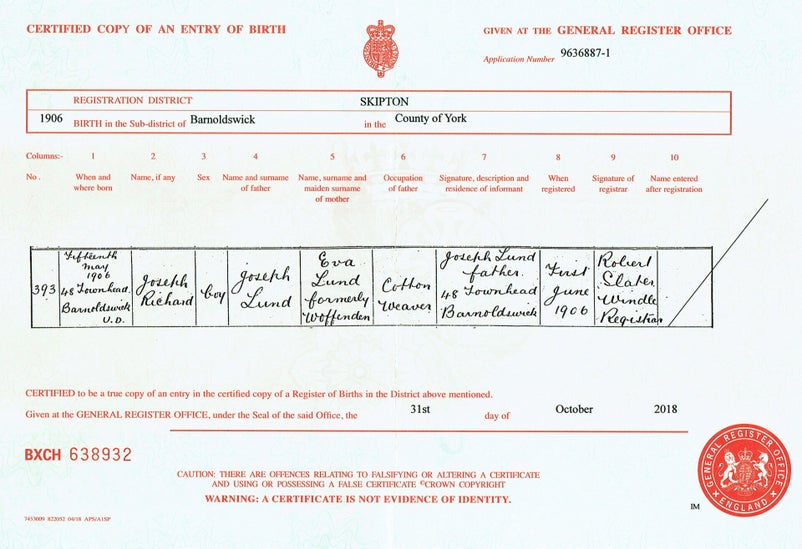 CERTIFIED COPY OF AN ENTRY OF BIRTH
GIVEN AT THE GENERAL REGISTER OFFICE
Application Number 9636887-1
REGISTRATION DISTRICT SKIPTON
1906 BIRTH in the Sub-district of Barnoldswick in the County of York
Columns:- 1 2 3 4 5 6 7 8 9 10
No. When and where born Name, if any Sex Name and surname of father Name, surname and maiden surname of mother Occupation of father Signature, description and residence of informant When registered Signature of registrar Name entered after registration
393
Fifteenth
May
1906
48 Townhead
Barnoldswick
U.D.
Joseph
Richard
boy
Joseph
Lund
Eva
Lund
formerly
Woffinden
Cotton
Weaver
Joseph Lund
father
48 Townhead
Barnoldswick
First
June
1906
Robert
Slater
Windle
Registrar
CERTIFIED to be a true copy of an entry in the certified copy of a Register of Births in the District above mentioned.
Given at the GENERAL REGISTER OFFICE, under the Seal of the said Office, the 31st day of October 2018
BXCH 638932
CAUTION: THERE ARE OFFENCES RELATING TO FALSIFYING OR ALTERING A CERTIFICATE
AND USING OR POSSESSING A FALSE CERTIFICATE ©CROWN COPYRIGHT
WARNING: A CERTIFICATE IS NOT EVIDENCE OF IDENTITY.
GENERAL REGISTER OFFICE
ENGLAND
IM
7453009 822052 04/18 APS/A1SP